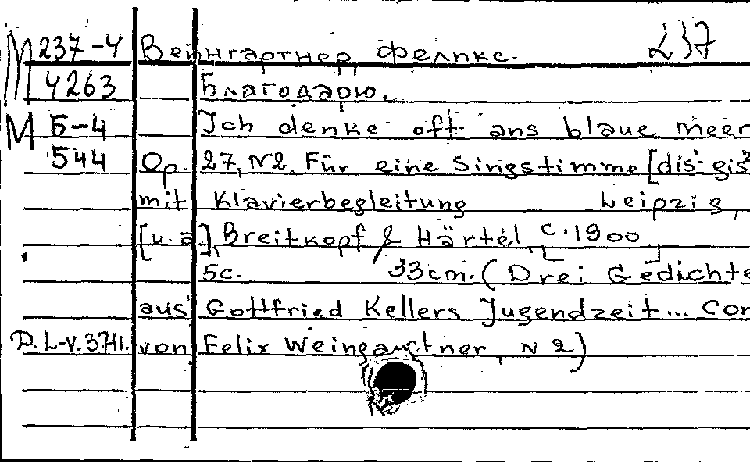 M 237-4 Вейнгартнер, Феликс. 237
4263 Благодарю.
М Б-4 Ich denke oft ans blaue meer
544 Op. 27, N2. Für eine Singstimme [dis'-gis²
mit Klavierbegleitung Leipzig,
[u.a], Breitkopf & Härtel, c. 1900
5c. 33cm. (Drei Gedichte
aus Gottfried Kellers Jugendzeit... Com
D. L-v. 3711. von Felix Weingartner, N 2)